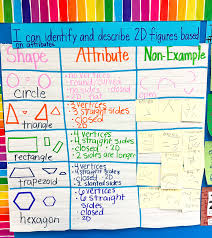 I can identify and describe 2D figures based
on attributes
Shape
Attribute
Non-Example
circle
no vertices
round curved
no sides closed
2D
open
triangle
3 vertices
3 straight sides
closed
2D
rectangle
4 vertices
4 straight sides
closed 2D
2 sides are longer
trapezoid
4 vertices
4 straight sides
closed 2D
2 slanted sides
hexagon
6 vertices
6 straight
sides
closed
2D